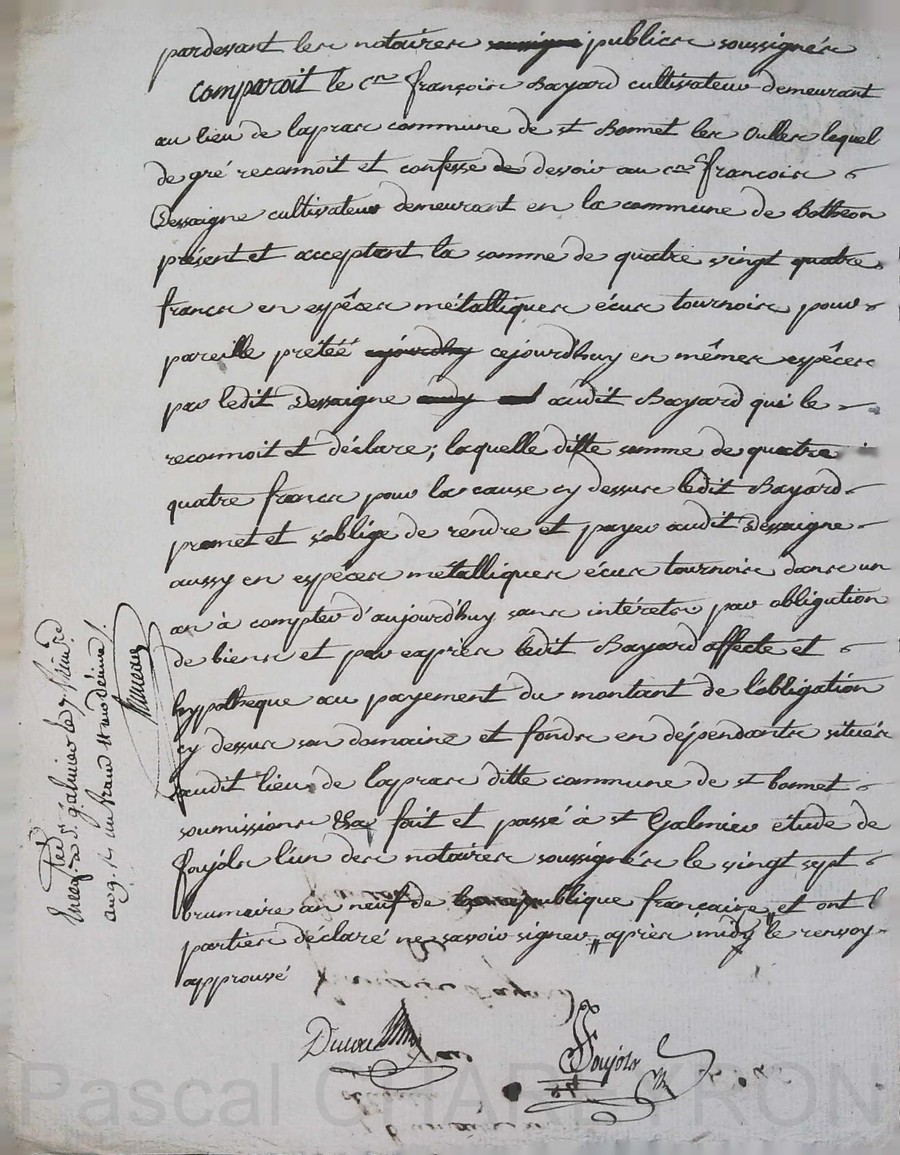 pardevant les notaires publics soussignés
comparoit le c.en françois Bayard cultivateur demeurant
au lieu de lapras commune de st Bonnet les Oulles lequel
de gré reconnoit et confesse devoir au c.en françois
Dessaigne cultivateur demeurant en la commune de Botheon
présent et acceptant la somme de quatre vingt quatre
francs en espêces métalliques écus tournois pour
pareille prêtéé cejourdhuy en mêmes espêces
par ledit Dessaigne audit Bayard qui le
reconnoit et déclare; laquelle ditte somme de quatre
quatre francs pour la cause cy dessus ledit Bayard
promet et s'oblige de rendre et payer audit Dessaigne
aussy en espêces métalliques écus tournois dans un
an à compter d'aujourdhuy sans intérets par obligation
de biens et par exprès ledit Bayard affecte et
hypotheque au payement du montant de l'obligation
cy dessus son domaine et fonds en dépendants situés
audit lieu de lapras ditte commune de st bonnet
soumissions fait et passé à st Galmier etude de
foujols l'un des notaires soussignés le vingt sept
brumaire an neuf de publique française et ont l
parties déclaré ne savoir signer après midy le renvoy
approuvé
foujols
Pascal CHAMPEYRON